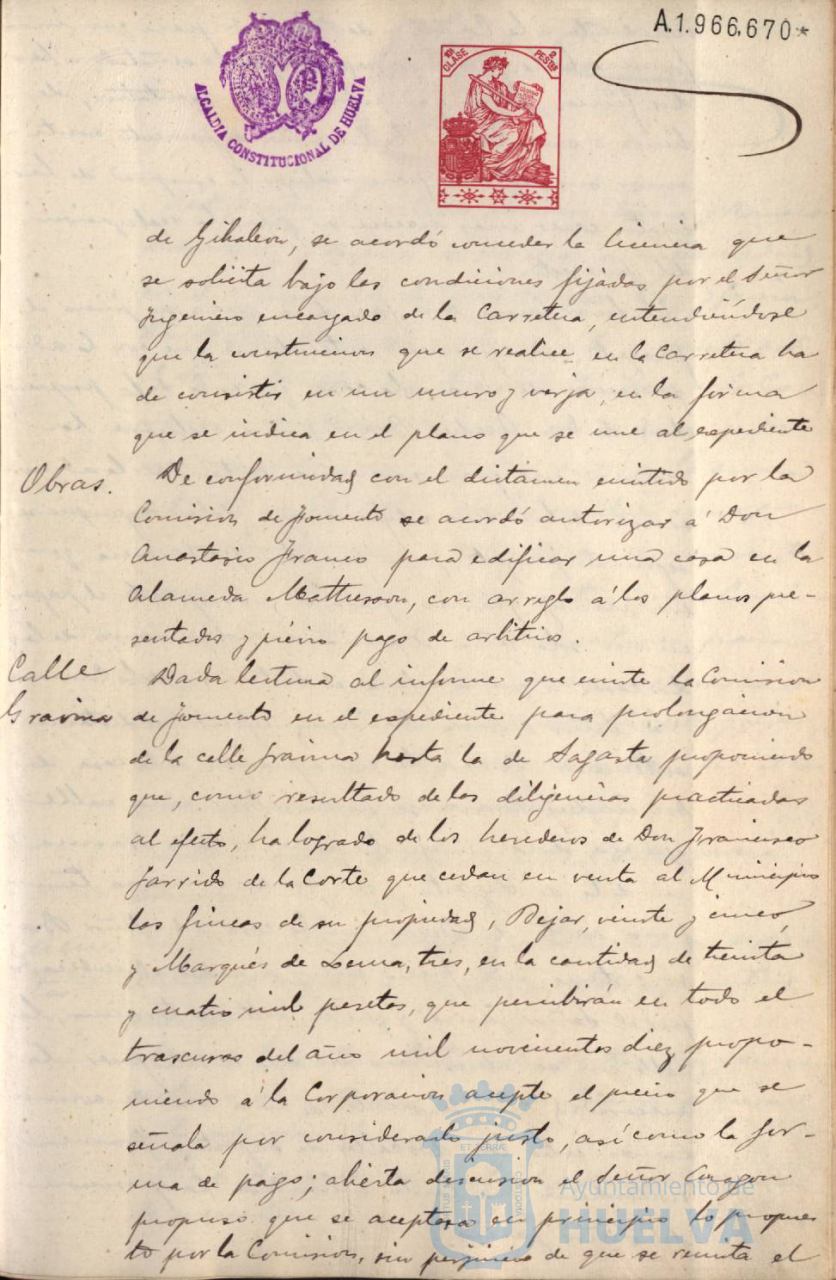 A.1.966,670*
ALCALDIA CONSTITUCIONAL DE HUELVA
10ª CLASE
2 PESTAS
de Gibraleon, se acordó conceder la licencia que
se solicita bajo las condiciones fijadas por el Señor
Ingeniero encargado de la Carretera, entendiéndose
que la construccion que se realice en la Carretera ha
de consistir en un muro y verja, en la forma
que se indica en el plano que se une al expediente
Obras.
De conformidad con el dictamen emitido por la
Comision de Fomento se acordó autorizar á Don
Anastasio Franco para edificar una casa en la
Alameda Mathesson, con arreglo á los planos pre-
sentados y prévio pago de arbitrios.
Calle
Gravina
Dada lectura al informe que emite la Comision
de Fomento en el expediente para prolongacion
de la calle Gravina hasta la de Sagasta proponiendo
que, como resultado de las diligencias practicadas
al efecto, ha logrado de los herederos de Don Francisco
Garrido de la Corte que cedan en venta al Municipio
las fincas de su propiedad, Bejar, veinte y cinco,
y Marqués de Lema, tres, en la cantidad de treinta
y cuatro mil pesetas, que percibirán en todo el
trascurso del año mil novecientos diez propo-
niendo á la Corporacion acepte el precio que se
señala por considerarlo justo, así como la for-
ma de pago; abierta discusion el Señor Aragon
propuso que se aceptara en principio lo propues
to por la Comision, sin perjuicio de que se remita el
Ayuntamiento de
HUELVA